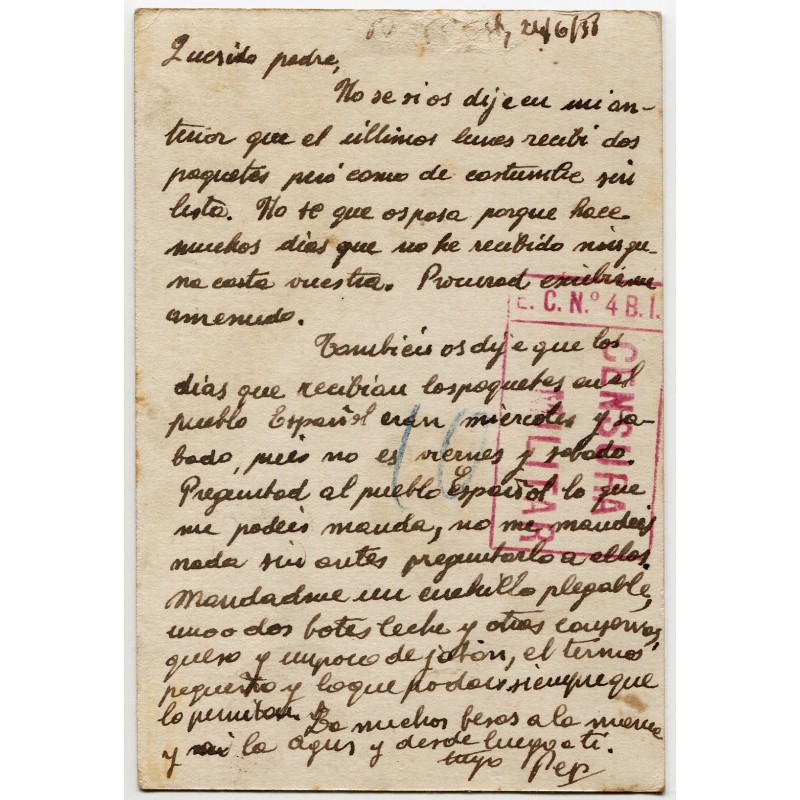 24/6/38
Querido padre,
No se si os dije en mi an-
terior que el últimos lunes recibi dos
paquetes peró como de costumbre sin
lista. No se que os pasa porque hace
muchos dias que no he recibido ningu-
na carta vuestra. Procurad escribirme
amenudo.
Tambien os dije que los
dias que recibian los paquetes en el
pueblo Español eran miercoles y sa-
bado, pués no es viernes y sabado.
Preguntad al pueblo Español lo que
me podeis manda, no me mandeis
nada sin antes preguntarlo a ellos.
Mandadme un cuchillo plegable,
uno o dos botes leche y otras conservas,
queso y un poco de jabón, el termos
pequeño y lo que podais siempre que
lo permitan. Da muchos besos a la mama
y a la Agus y desde luego a ti.
tuyo Pep
E. C. N.º 4 B. I.
CENSURA
MILITAR
10